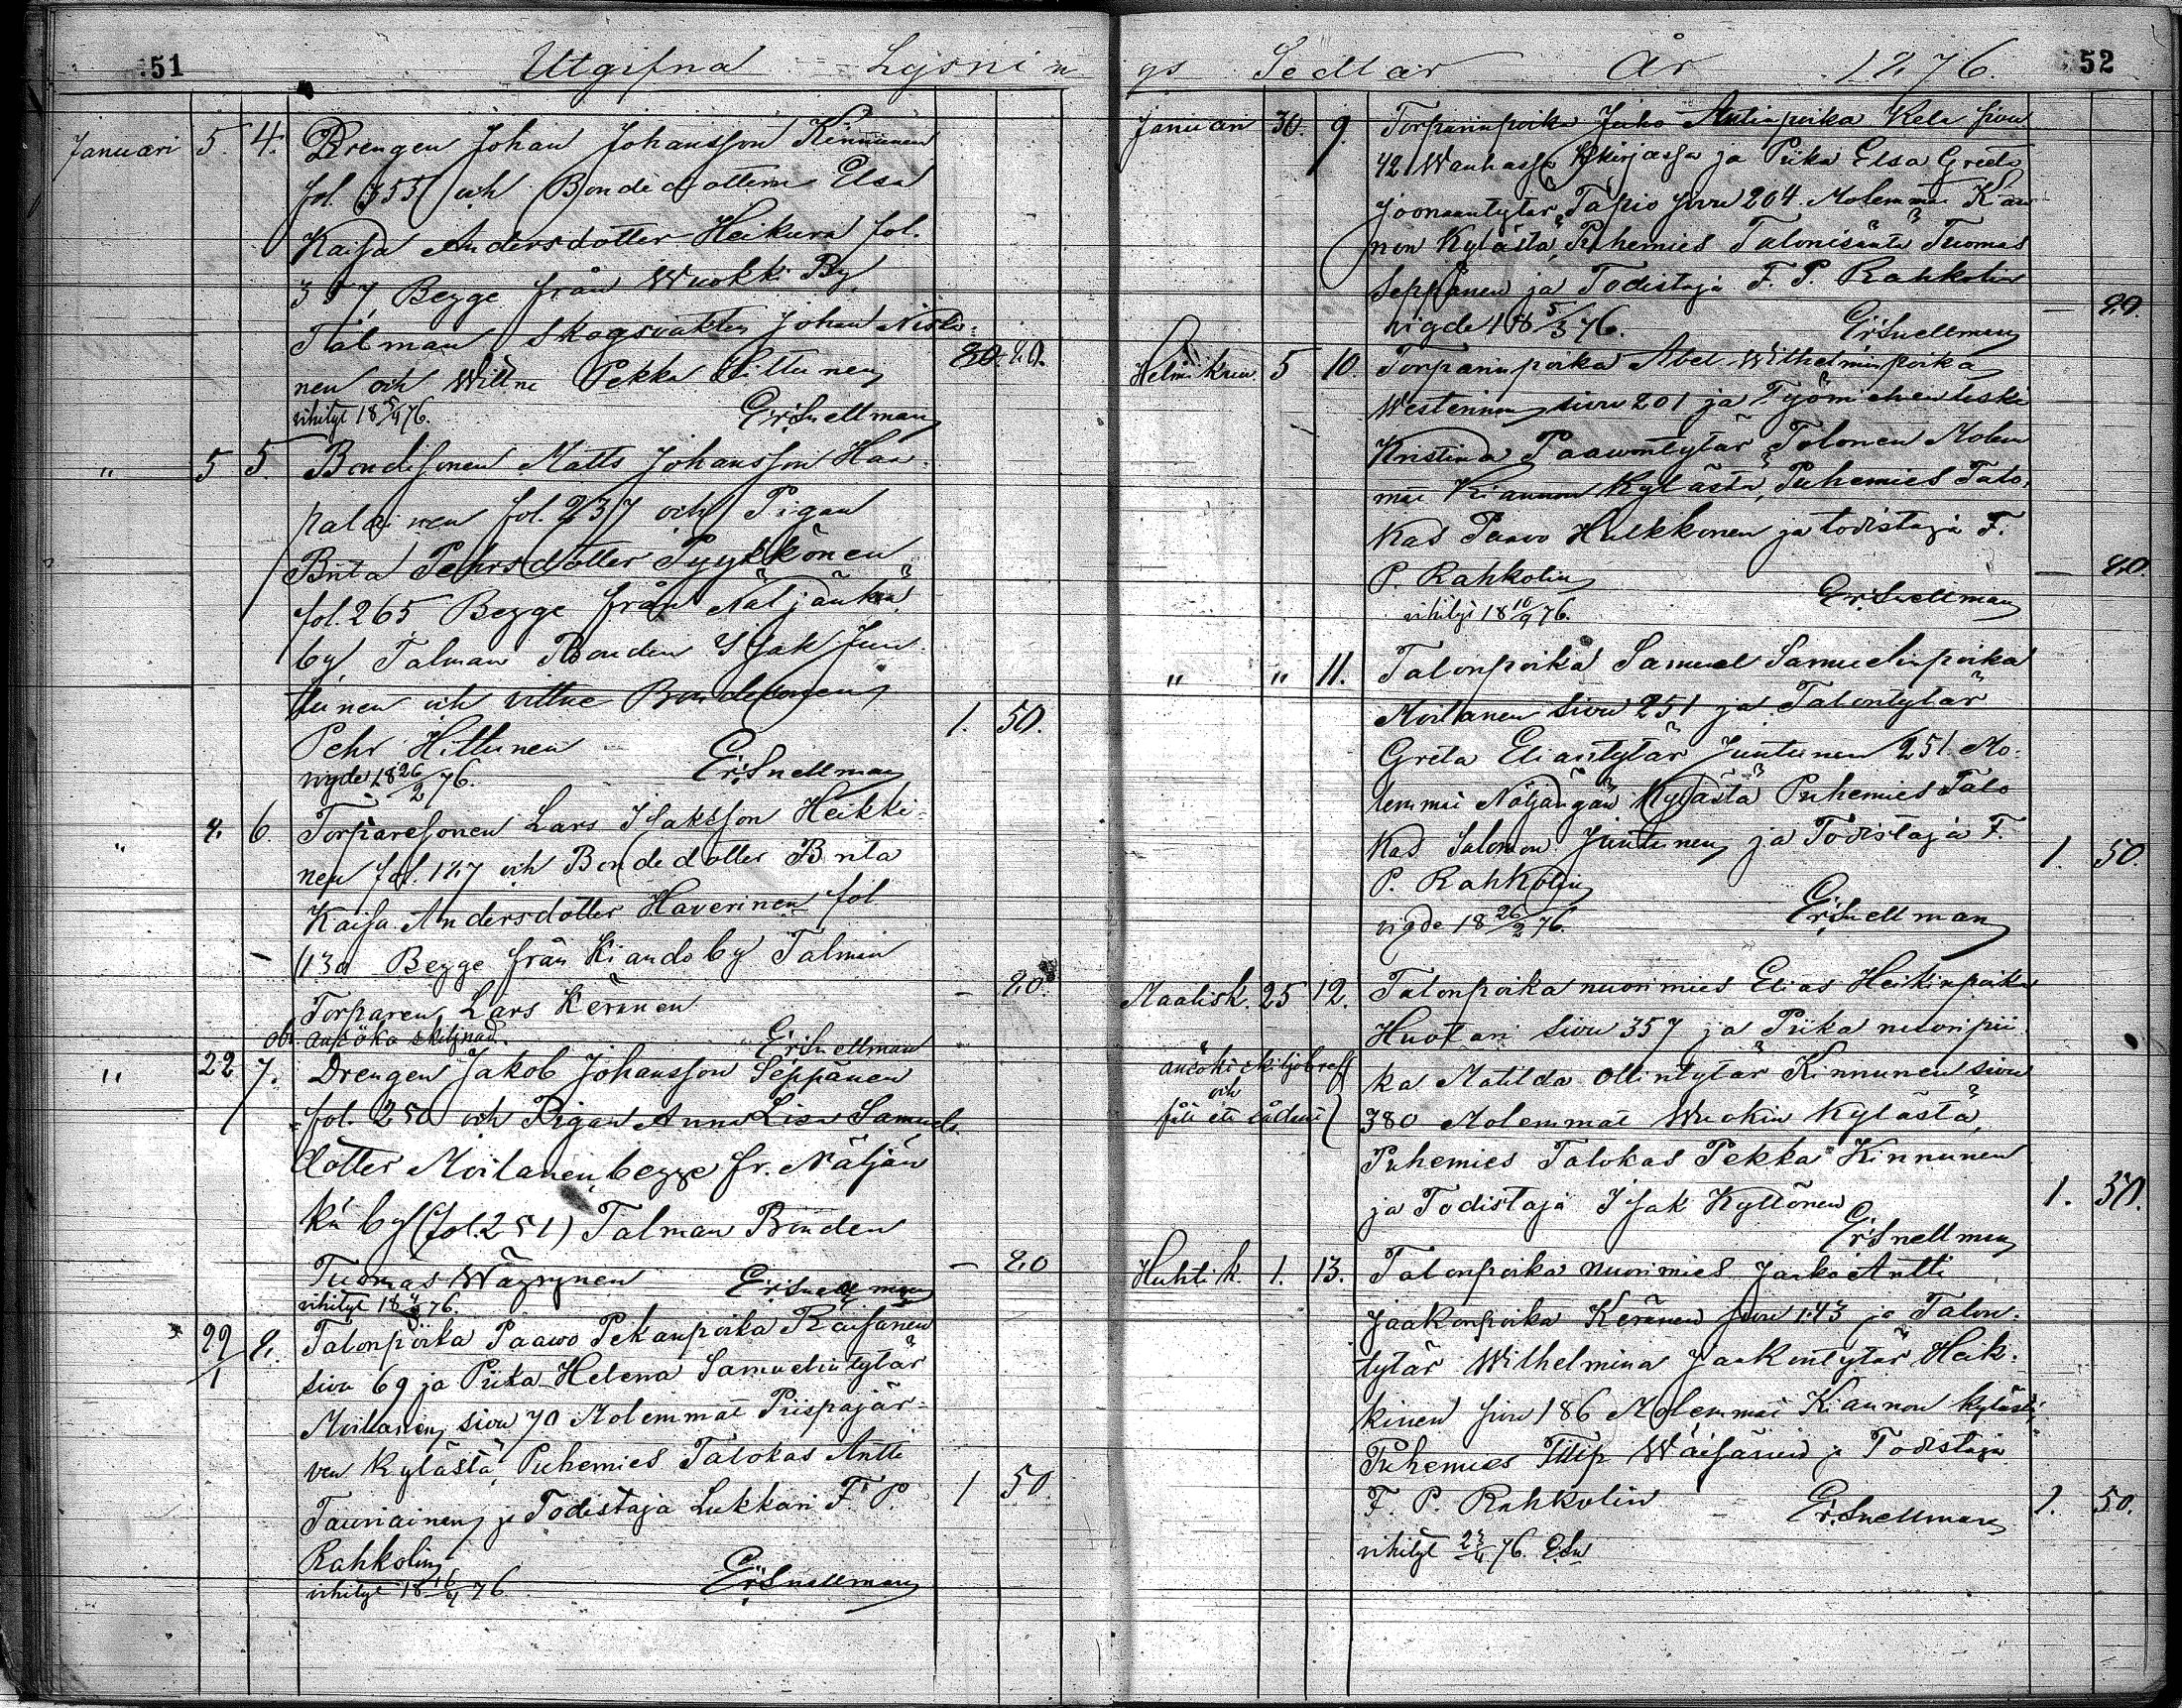 51
Utgifna Lysnin
Januari 5. 4. Drengen Johan Johansson Kinnunen
fol. 355 och Bondedottern Elsa
Kaisa Andersdotter Heikura fol.
357 Begge från Wuokki By,
Talman Skogsvakten Johan Niska-
nen och Wittne Pekka Hittunen 80. 80.
vihityt 18 76. Er. Snellman
" 5 5. Bondesonen Matts Johansson Haa-
palainen fol. 237 och Pigan
Brita Pehrsdotter Pyykkönen
fol. 265 Begge från Näljänkä
by Talman Bonden Isak Jun-
tunen och vittne Bondesonen
Pehr Hittunen 1. 50.
vigde 18 26/2 76. Er. Snellman
" 6. Torparesonen Lars Isaksson Heikki-
nen fol. 127 och Bondedotter Brita
Kaisa Andersdotter Haverinen fol
130 Begge från Kiando by Talman
Torparen Lars Keränen – 80.
ansöka skiljnad. Er. Snellman
" 22 7. Drengen Jakob Johansson Seppänen
fol. 250 och Pigan Anna Lisa Samuels-
dotter Moilanen, begge fr. Näljän-
kä by (fol. 251) Talman Bonden
Tuomas Wäyrynen – 80
vihityt 18 76. Er. Snellman
22/1 8. Talonpoika Paawo Pekanpoika Räisänen
sivu 69 ja Piika Helena Samuelintytär
Moilanen, sivu 70 Molemmat Piispajär-
ven Kylästä, Puhemies Talokas Antti
Tauriainen, ja Todistaja Lukkari F. P. 1 50
Rahkolin
vihityt 18 76 Er. Snellman
52
gs Sedlar År 1876.
Januari 30. 9. Torparinpoika Juho Antinpoika Kela sivu
42 Wanhassa Kirjassa ja Piika Elsa Greeta
Joonaantytär Tapio sivu 204. Molemmat Kian-
non Kylästä, Puhemies Talonisäntä Tuomas
Seppänen ja Todistaja F. P. Rahkolin
vigde 18 5/3 76. Er. Snellman – 80.
Helmikuu. 5 10. Torparinpoika Abel Wilhelminpoika
Westerinen, sivu 201 ja Työmiehen leski
Kristina Paawontytär Tolonen Molem-
mat Kiannon Kylästä, Puhemies Talo-
kas Paavo Hulkkonen ja todistaja F.
P. Rahkolin – 80.
vihityt 18 76. Er. Snellman
" " 11. Talonpoika Samuel Samuelinpoika
Moilanen sivu 251 ja Talontytär
Greta Eliantytär Juntunen 251. Mo-
lemmat Näljängän Kylästä Puhemies Talo
kas Salomon Juntunen, ja Todistaja F. 1. 50.
P. Rahkolin
vigde 18 26/2 76. Er. Snellman
Maalisk. 25 12. Talonpoika nuorimies Elias Heikinpoika
Huotari sivu 357 ja Piika nuoripii-
ka Matilda Ollintytär Kinnunen sivu
och
380 Molemmat Wuokin Kylästä,
Puhemies Talokas Pekka Kinnunen
ja Todistaja Isak Kyllönen 1. 50.
Er. Snellman
Huhtik. 1. 13. Talonpoika nuorimies Jaako Antti
Jaakonpoika Keränen sivu 143 ja Talon-
tytär Wilhelmina Jaakontytär Heik-
kinen sivu 186 Molemmat Kiannon kylästä,
Puhemies Filip Wäisänen ja Todistaja
F. P. Rahkolin Er. Snellman 1. 50.
vihityt 23/4 76.